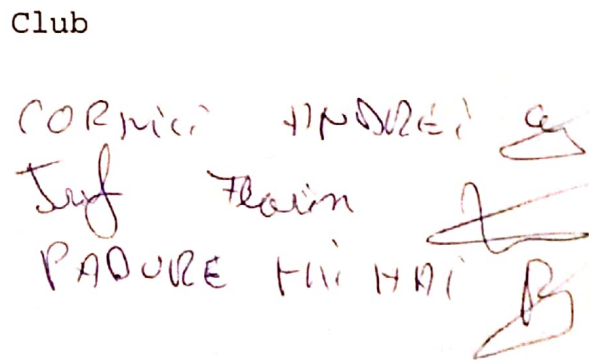 Club
CORNICI ANDREI
Florin
PADURE MIHAI